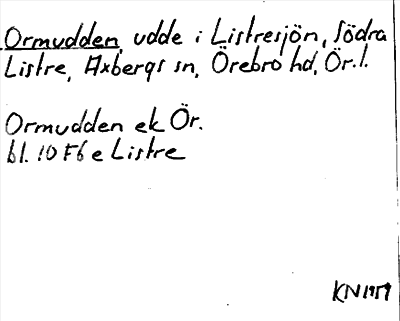 Ormudden, udde i Listresjön, Södra
Listre, Axbergs sn, Örebro hd, Ör. l.
Ormudden ek Ör.
bl. 10 F6 e Listre
KN 1959